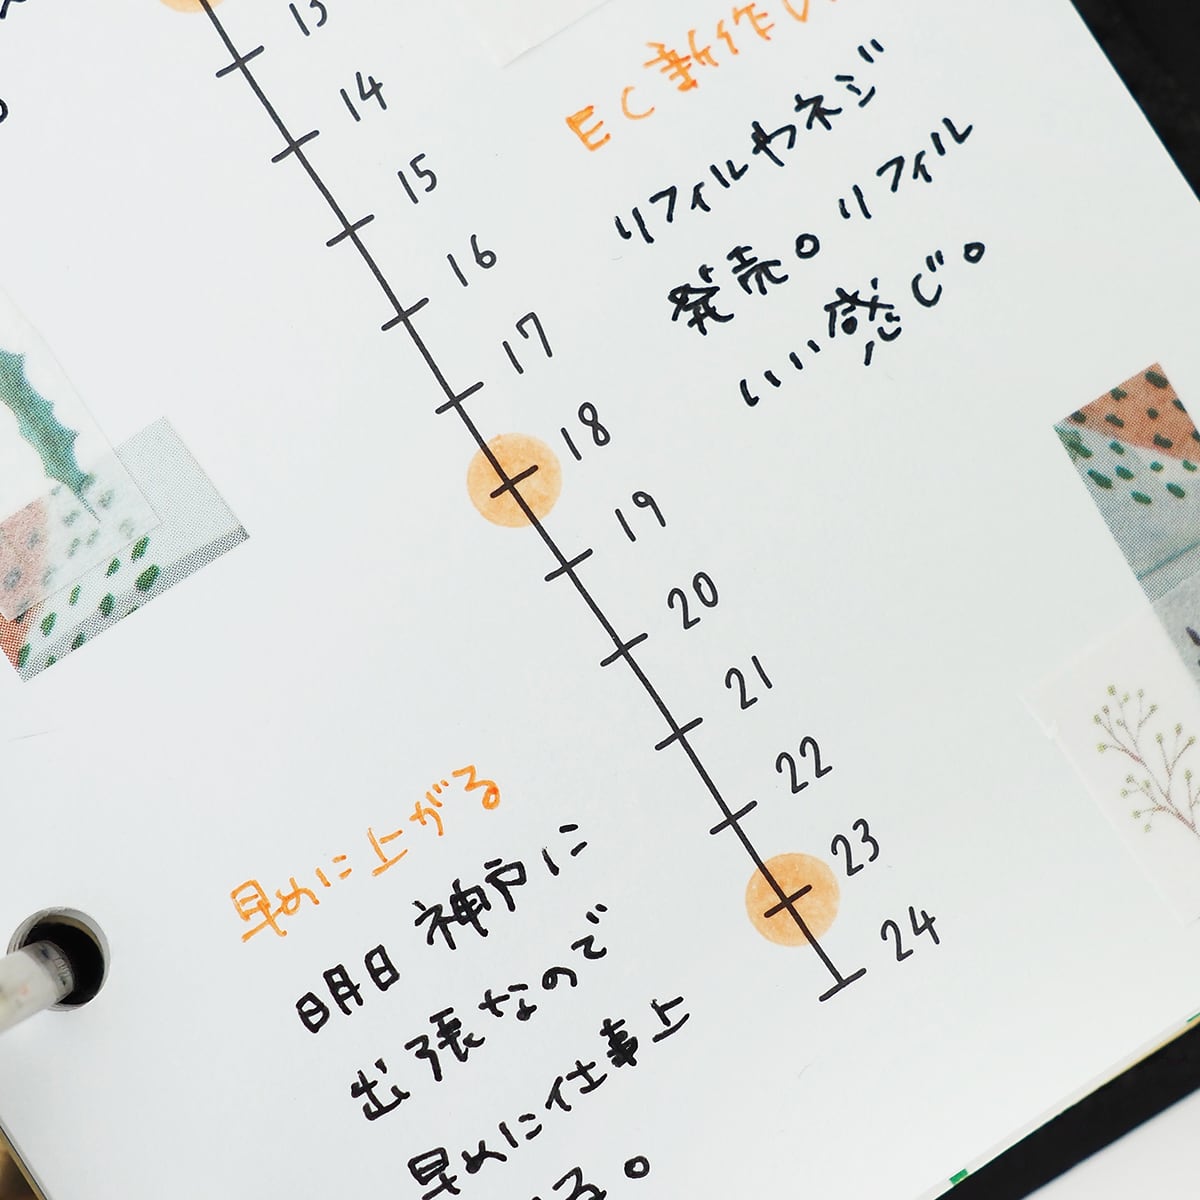 13
14
15
16
17
18
19
20
21
22
23
24
EC新作
リフィルやネジ
発売。リフィル
いい感じ。
早めに上がる
明日神戸に
出張なので
早めに仕事上
る。